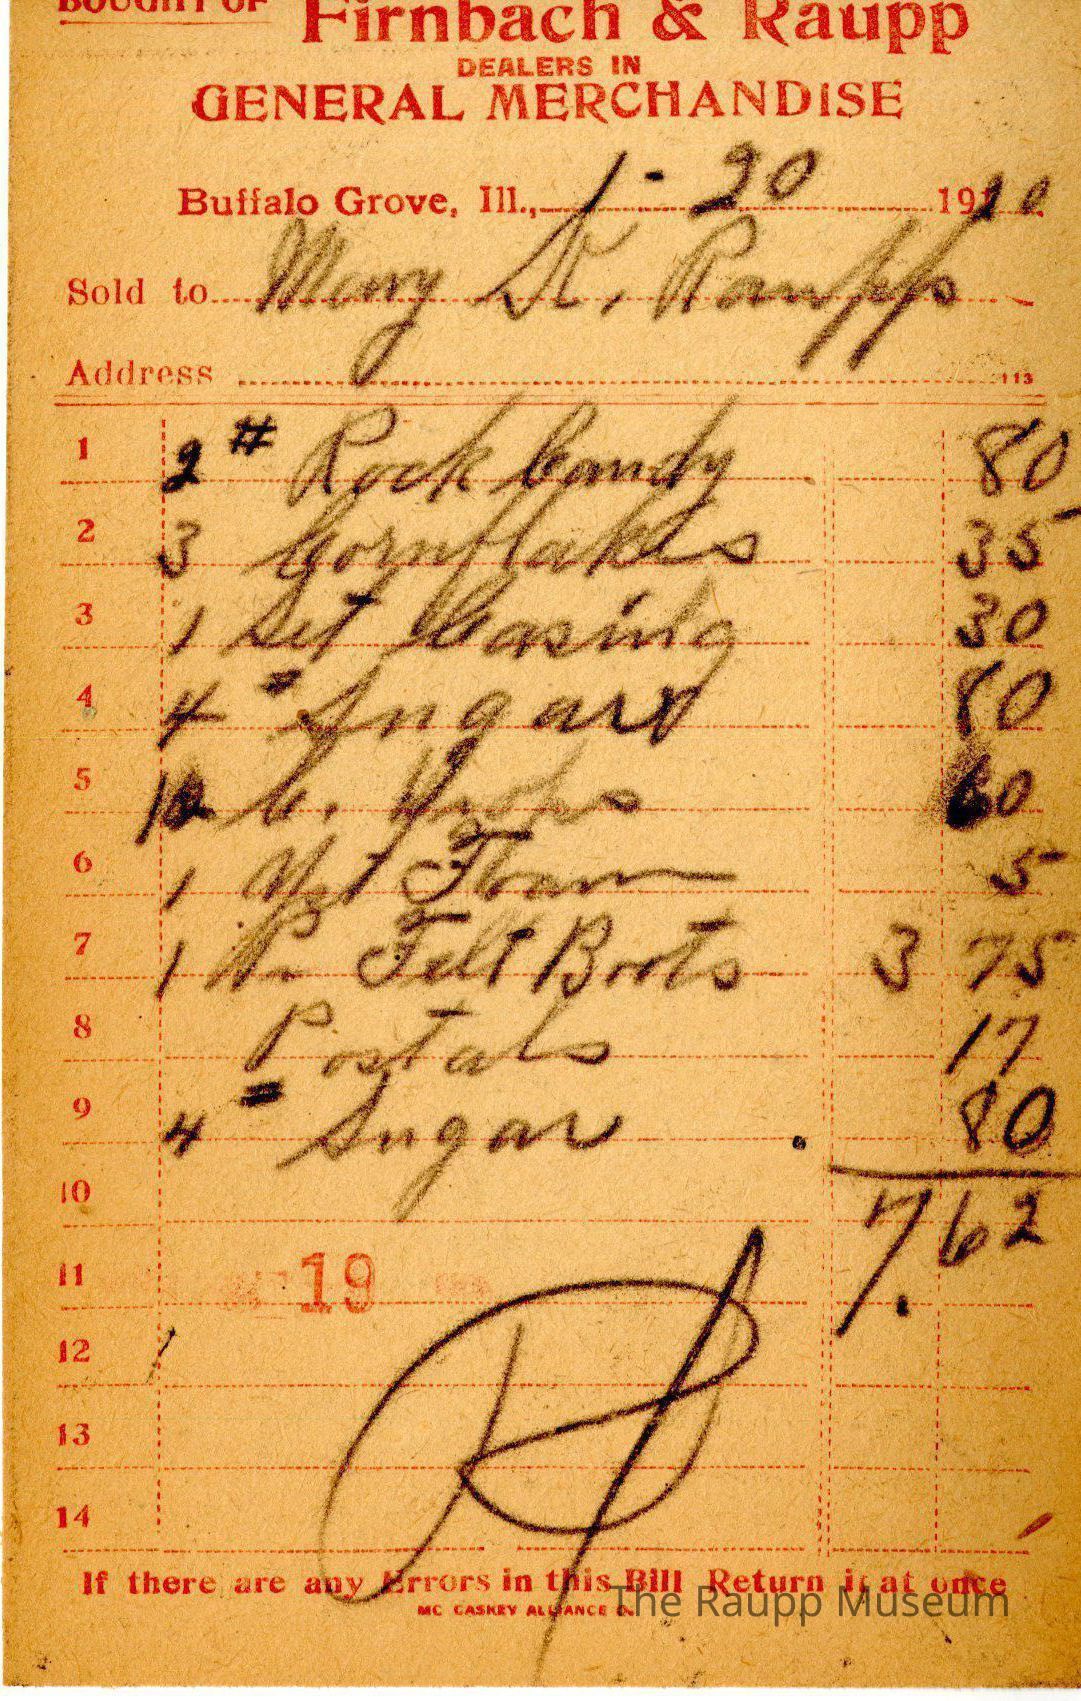 BOUGHT OF Firnbach & Raupp
DEALERS IN
GENERAL MERCHANDISE
Buffalo Grove, Ill., 1-20 1920
Sold to Mary K. Raupp
Address 113
1 2 # Rock Candy 80
2 3 Cornflakes 35
3 1 Set Casing 30
4 4 = Sugar 80
5 C. 60
6 1 Yst Foam 5
7 1 Pr Felt Boots 3 75
8 Postals 17
9 4 = Sugar 80
10 7.62
11 19
12
13
14
If there are any Errors in this Bill Return it at once
MC CASKEY ALLIANCE O.
The Raupp Museum